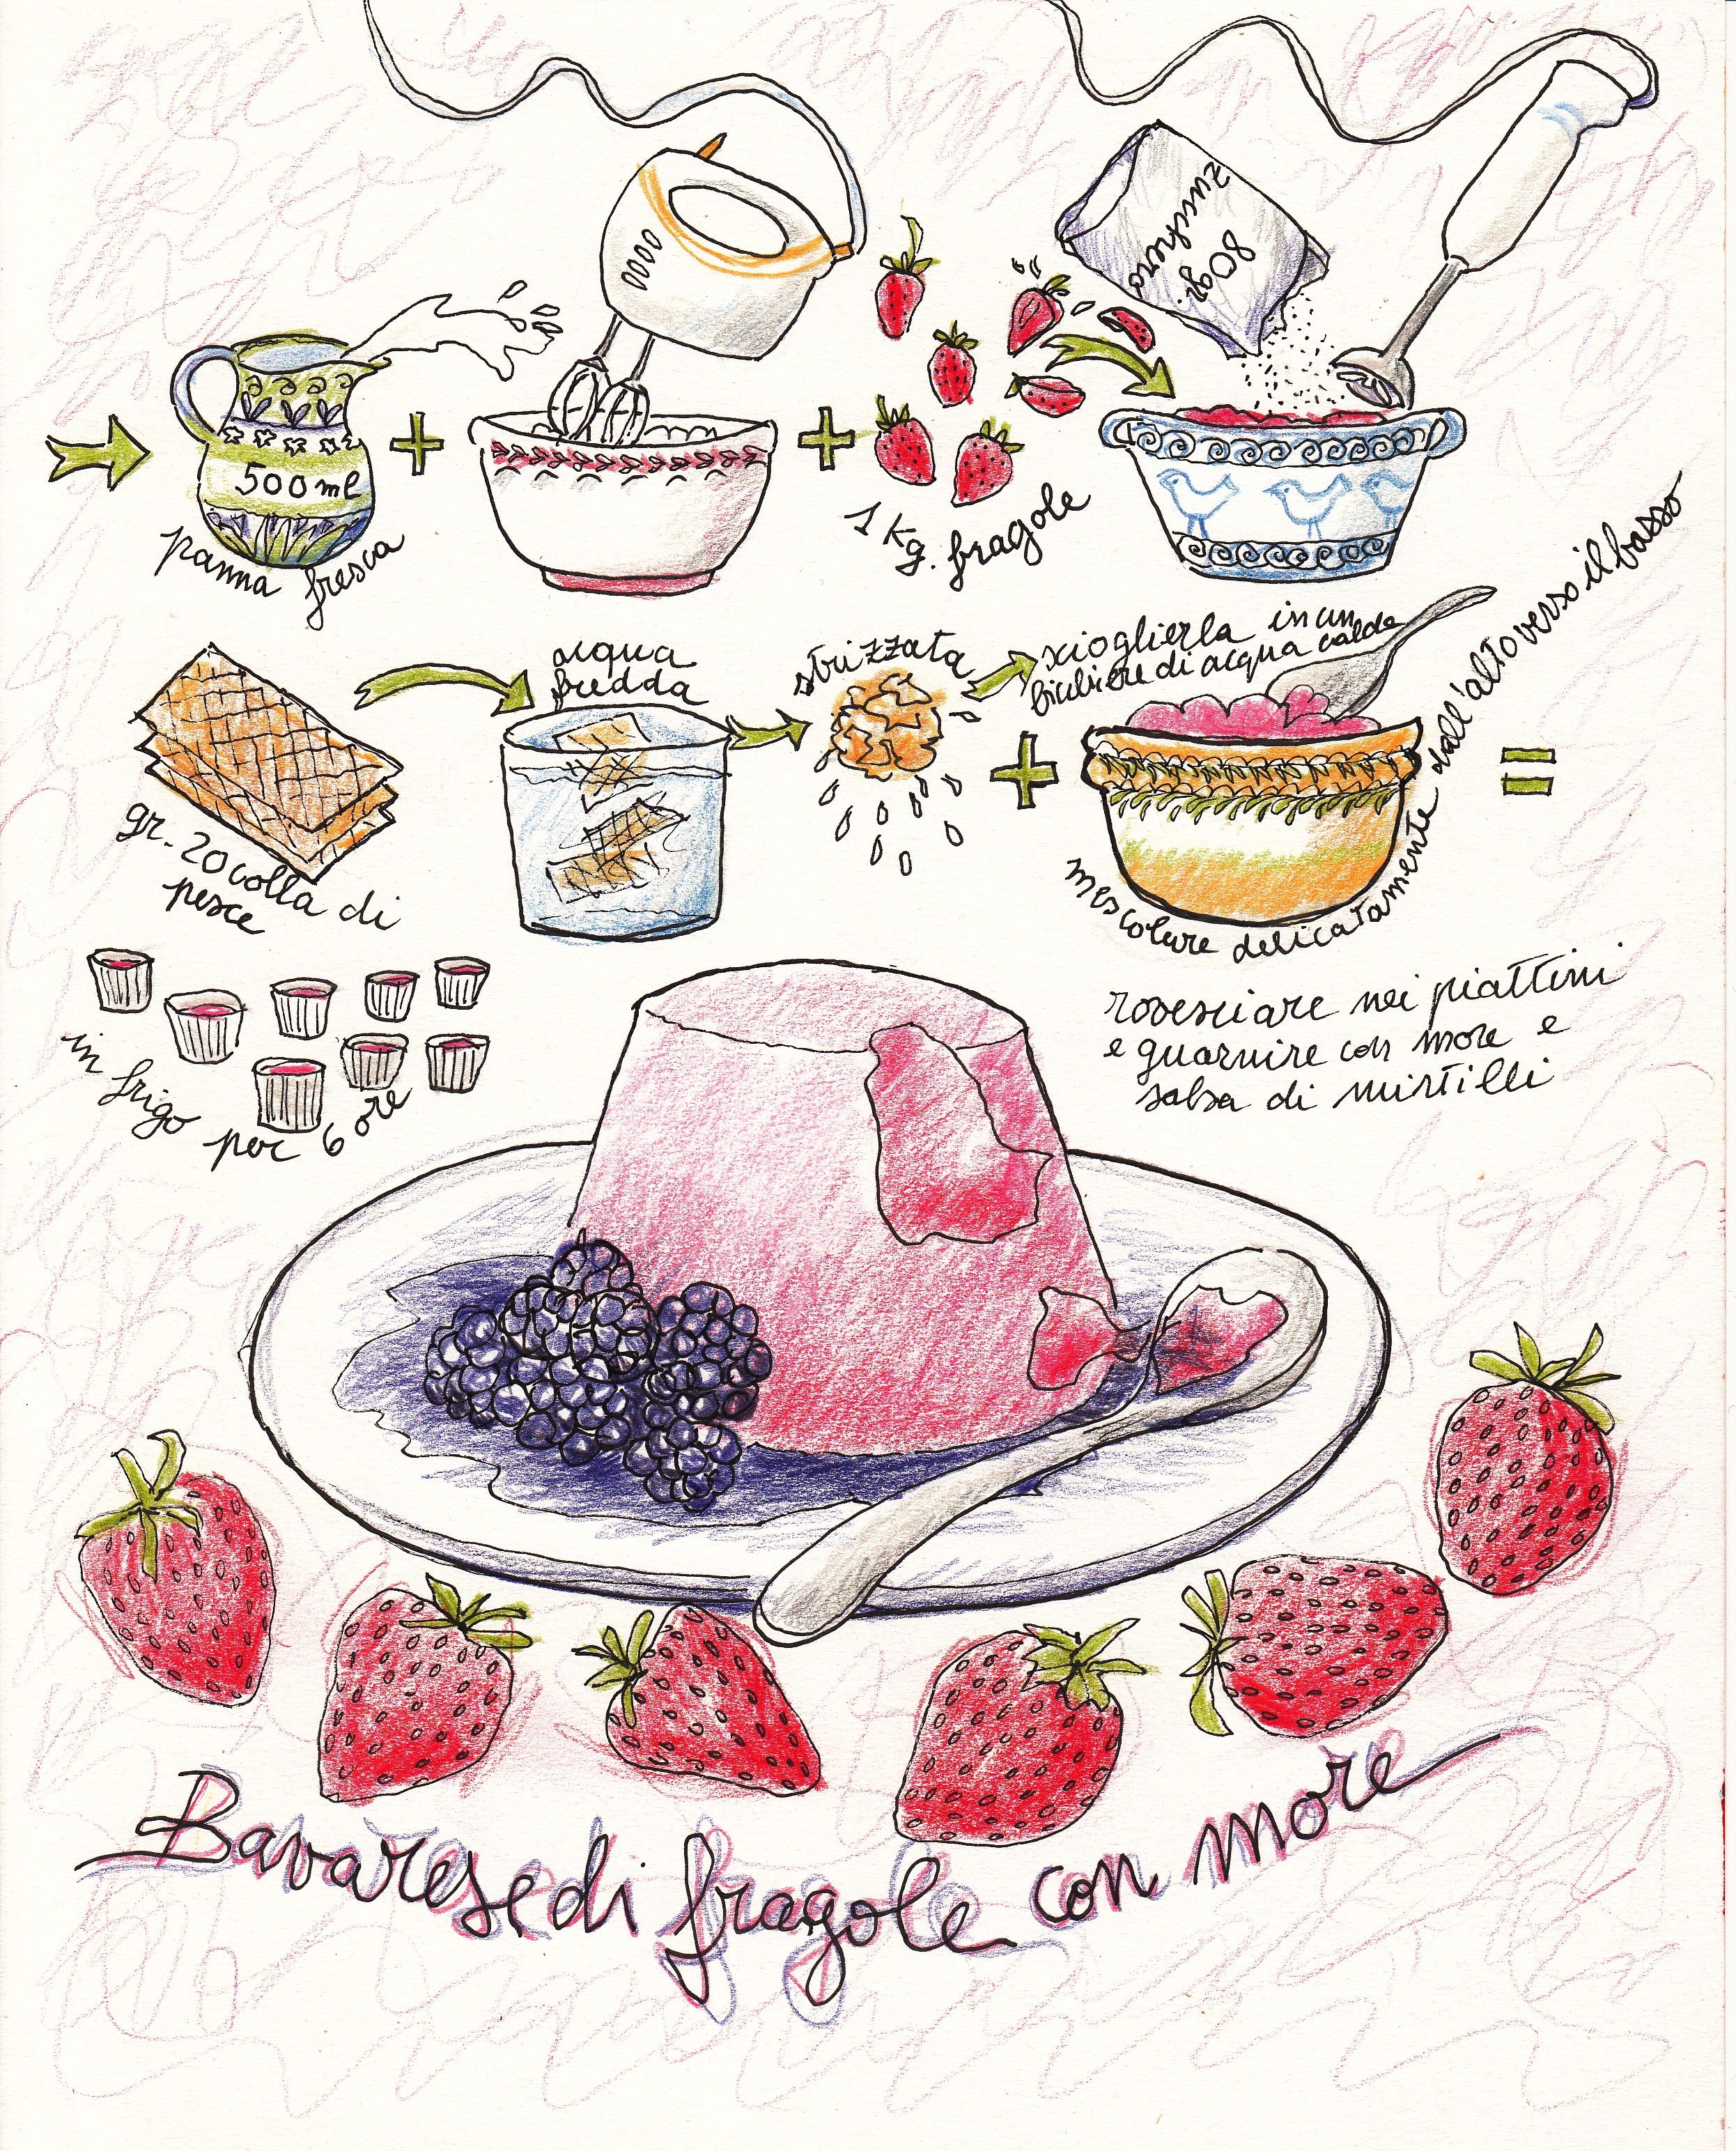 500 ml
panna fresca
1 Kg. fragole
zucchero
80 gr.
gr. 20 colla di
pesce
acqua
fredda
strizzata
scioglierla in un
bicchiere di acqua calda
mescolare delicatamente dall'alto verso il basso
in frigo
per 6 ore
rovesciare nei piattini
e guarnire con more e
salsa di mirtilli
Bavarese di fragole con more